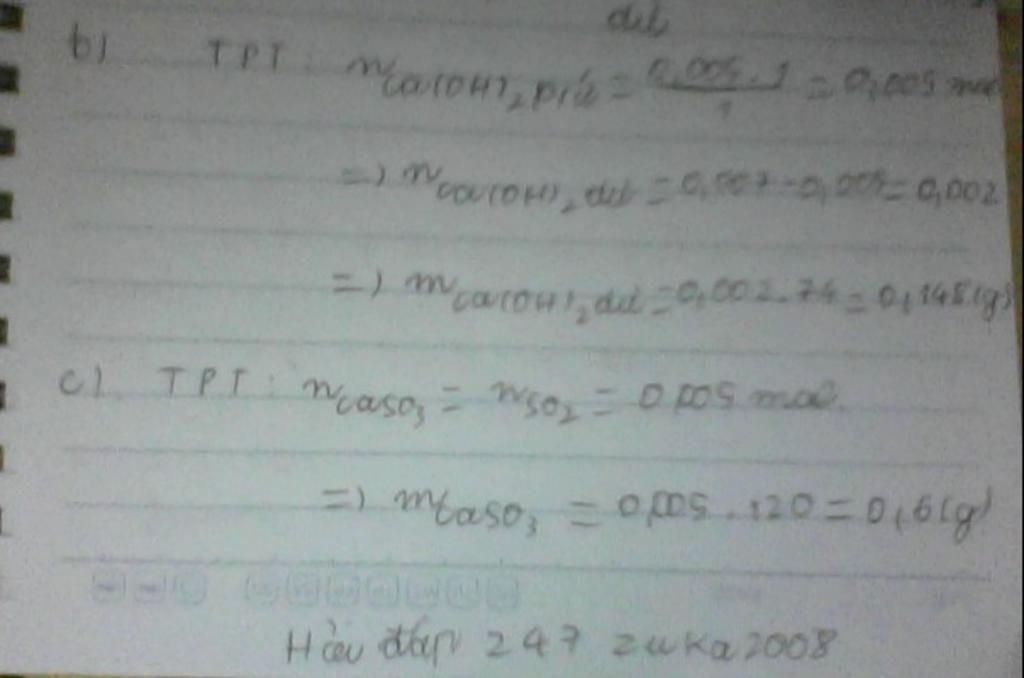 dư
b) TPT: nCa(OH)₂ p/ứ = 0,005.1/1 = 0,005 mol
=) nCa(OH)₂ dư = 0,007-0,005 = 0,002
=) mCa(OH)₂ dư = 0,002.74 = 0,148(g)
c) TPT: nCaSO₃ = nSO₂ = 0,005 mol.
=) mCaSO₃ = 0,005.120 = 0,6(g)
Hỏi đáp 247 zuka2008